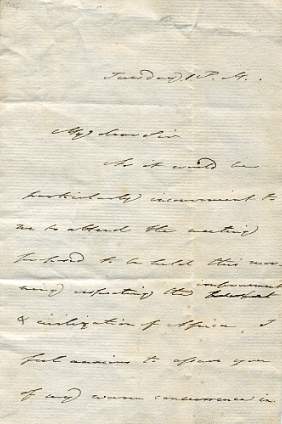 Tuesday 1 P.M.
My dear Sir
As it would be
particularly inconvenient to
me to attend the meeting
proposed to be held this mor-
ning respecting the improvement
& civilization of Africa, I
feel anxious to assure you
of my warm concurrence in